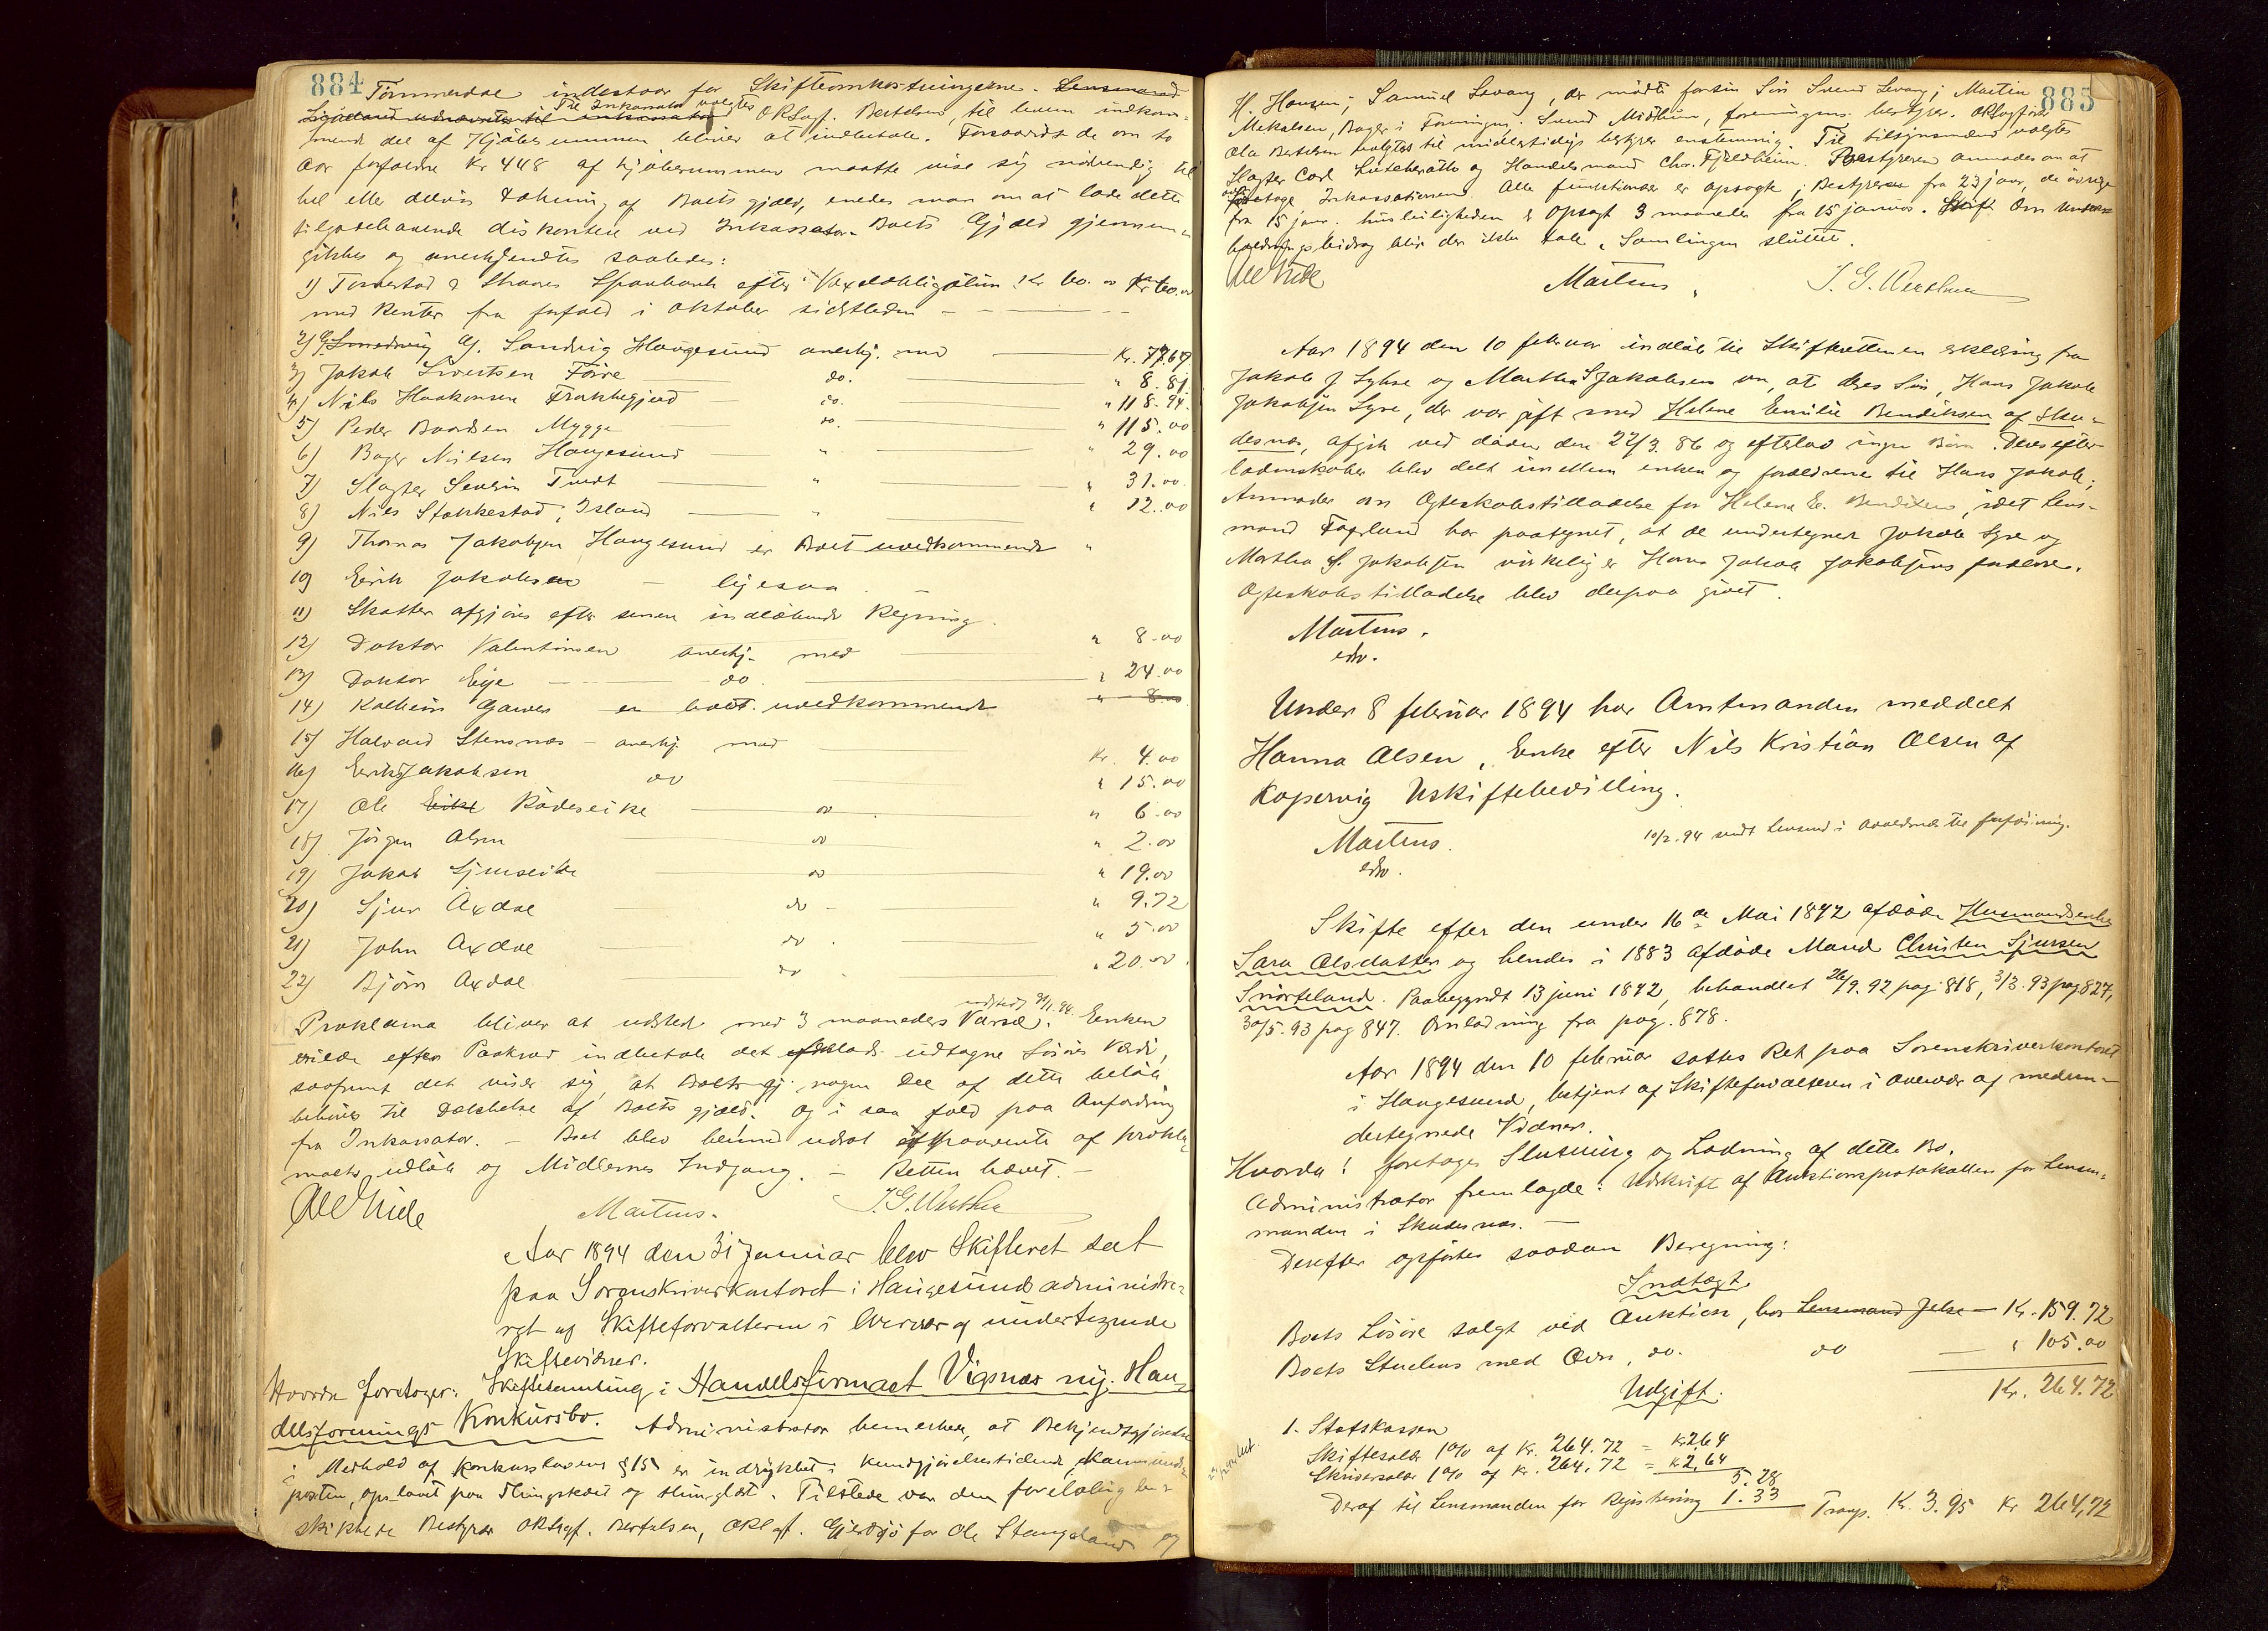 884
Tømmerdal indestaar for Skifteomkostningerne. Lensmand
Til Inkasator valgtes
O R Sagf. Bertelsen, til hvem indkom-
mende del af Kjøbesummen bliver at indbetale. Forsaavidt de om to
Aar forfaldne Kr 448 af kjøbesummen maatte vise sig nødvendig til
hel eller delvis Dækning af Boets gjæld, enedes man om at lade dette
tilgodehavende diskontere ved Inkassator. Boets Gjæld gjennem-
gikkes og anerkjendtes saaledes:
1) Torvestad & Skaares Sparebank efter Vexelobligation Kr 60.00 Kr 60.00
med Renter fra forfald i Oktober sidstleden
2) G. Sandvig Haugesund anerkj. med Kr. 77.67
3) Jakob Sivertsen Føire do. " 8.81
4) Nils Haakonsen Frakkegjerd do. " 118.94
5) Peder Baardsen Mygge do. " 115.00
6) Bager Nilsen Haugesund " " 29.00
7) Slagter Severin Tvedt " " 31.00
8) Nils Stakkestad, Island " " 12.00
9) Thomas Jakobsen Haugesund er Boet uvedkommende "
10) Eerik Jakobsen — ligesaa
11) Skatter afgjøres efter senere indløbende Regning.
12) Doktor Valentinsen anerkj. med " 8.00
13) Doktor Eye do. " 24.00
14) Kolbein Gawer er boet uvedkommende " 8.00
15) Halvard Stensnæs - anerkj. med Kr. 4.00
16) Eerik Jakobsen do " 15.00
17) Ole Eike Rødeseike do " 6.00
18) Jørgen Olsen do " 2.00
19) Jakob Sjurseike do " 19.00
20) Sjur Axdal do " 9.72
21) John Axdal do " 5.00
22) Bjørn Axdal do " 20.00
udstedt 31/1.94.
Proklama bliver at udstede med 3 maaneders Varsel. Enken
vilde efter Paakrav indbetale det udtagne Løsøres Værdi,
saafremt det viser sig, at Boets gj. nogen Del af dette beløb
behøves til Dækkelse af Boets gjæld, og i saa fald paa Anfordring
fra Inkassator. - Boet blev herved udsat i paavente af prokla-
maets udløb og Midlernes Indgang. - Retten hævet. -
Ole Hile Martens. J. G. Wathne
Aar 1894 den 31 Januar blev Skifteret sat
paa Sorenskriverkontoret i Haugesund administre-
ret af Skifteforvalteren i Overvær af undertegnede
Skiftevidner.
Hvorda foretages: Skiftesamling i Handelsfirmaet Vigsnæs ny. Han-
delsforenings Konkursbo. Administrator bemerkede, at Bekjendtgjørelse
i Medhold af Konkurslovens §15 er indrykket i Kundgjørelsestidende, Karmsunds-
posten, opslaaet paa Thingstedet og thinglæst. Tilstede var den foreløbig be-
skikkede Bestyrer ORSagf. Bertelsen, ORSagf. Gjerdsjø for Ole Stangeland og
885
H. Hansen, Samuel Levang, der mødte for sin Søn Svend Levang, Martin
Mikalsen, Bager i Foreningen, Svend Midthun, foreningens bestyrer. ORSagfører
Ola Bertelsen valgtes til midlertidigt bestyrer enstemmig. Til tilsynsmænd valgtes
Slagter Carl Lütcherath og Handelsmand Chr. Fjeldheim. Bestyreren anmodes om at
foretage Inkassationen. Alle funktionær er opsagte; Bestyreren fra 23 jan, de øvrige
fra 15 jan. husleiligheden er opsagt 3 maaneder fra 15 januar. Om under-
holdningsbidrag blir der ikke tale. Samlingen sluttet.
Ole Hile Martens. J. G. Wathne
Aar 1894 den 10 februar indløb til Skifteretten en erklæring fra
Jakob J Sylve og Martha S Jakobsen om, at deres Søn, Hans Jakob
Jakobsen Syre, der var gift med Helene Emilie Bendiksen af Sku-
desnæs, afgik ved døden den 22/3.86 og efterlod ingen Børn. Deres efter-
ladenskaber blev delt imellem enken og forældrene til Hans Jakob;
Anmoder om Ægteskabstilladelse for Helene E. Bendixen, idet Lens-
mand Fagerland har paategnet, at de undertegnede Jakob Syre og
Martha S. Jakobsen virkelig er Hans Jakob Jakobsens forældre.
Ægteskabstilladelse blev derpaa givet.
Martens.
edv.
Under 8 februar 1894 har Amtmanden meddelt
Hanna Olsen, Enke efter Nils Kristian Olsen af
Kopervig Uskiftebevilling.
Martens.
edv.
10/2.94 sendt Lensmd i Avaldsnæs til forføining.
Skifte efter den under 16de Mai 1892 afdøde Husmandsenke
Sara Olsdatter og hendes i 1883 afdøde Mand Christen Sjursen
Snørteland. Paabegyndt 13 juni 1892, behandlet 26/9.92 pag. 818, 3/3.93 pag 827,
30/5.93 pag 847. Omladning fra pag. 878.
Aar 1894 den 10 februar sattes Ret paa Sorenskriverkontoret
i Haugesund, betjent af Skifteforvalteren i overvær af medun-
dertegnede Vidner.
Hvorda: foretages Slutning og Lodning af dette Bo.
Administrator fremlagde: Udskrift af Auktionsprotokollen for Lens-
manden i Skudesnæs. -
Derefter opførtes saadan Beregning:
Indtægt
Boets Løsøre solgt ved Auktion, hos Lensmand Jelse - Kr. 159.72
Boets Stuehus med Ovn, do. do " 105.00
Kr. 264.72
Udgift.
1. Statskassen
Skiftesalær 1% af Kr. 264.72 = Kr 264
Skriversalær 1% af Kr. 264.72 = K 2,64
5.28
Deraf til Lensmanden for Registrering 1.33 Transp. Kr. 3.95 Kr 264,72